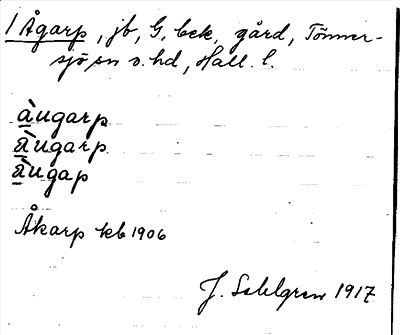 1 Ågarp, jb, G, bek, gård, Tönner-
sjö sn o. hd, Hall. l.
àugarp
àugarp
àugap
Åkarp kb 1906
J. Sahlgren 1917